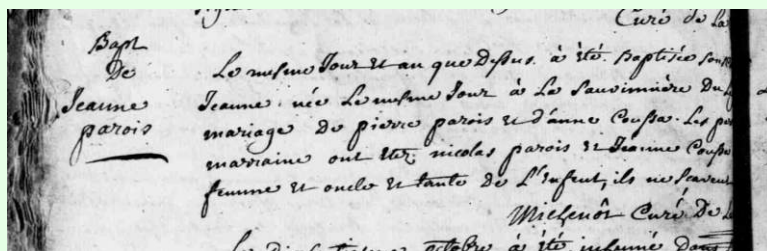 Curé de La
Bapt
De
Jeanne
parois
Le mesme Jour et an que Dessus. à été Baptisée sous
Jeanne. née Le mesme Jour à La Sauvinnière Du
mariage de pierre parois et d'anne Coussa. Les
marraine ont été nicolas parois et Jeanne Coussa
femme et oncle et tante de L'enfent, ils ne scavent
Michenôt Curé De
octobre à été inhumé Dans